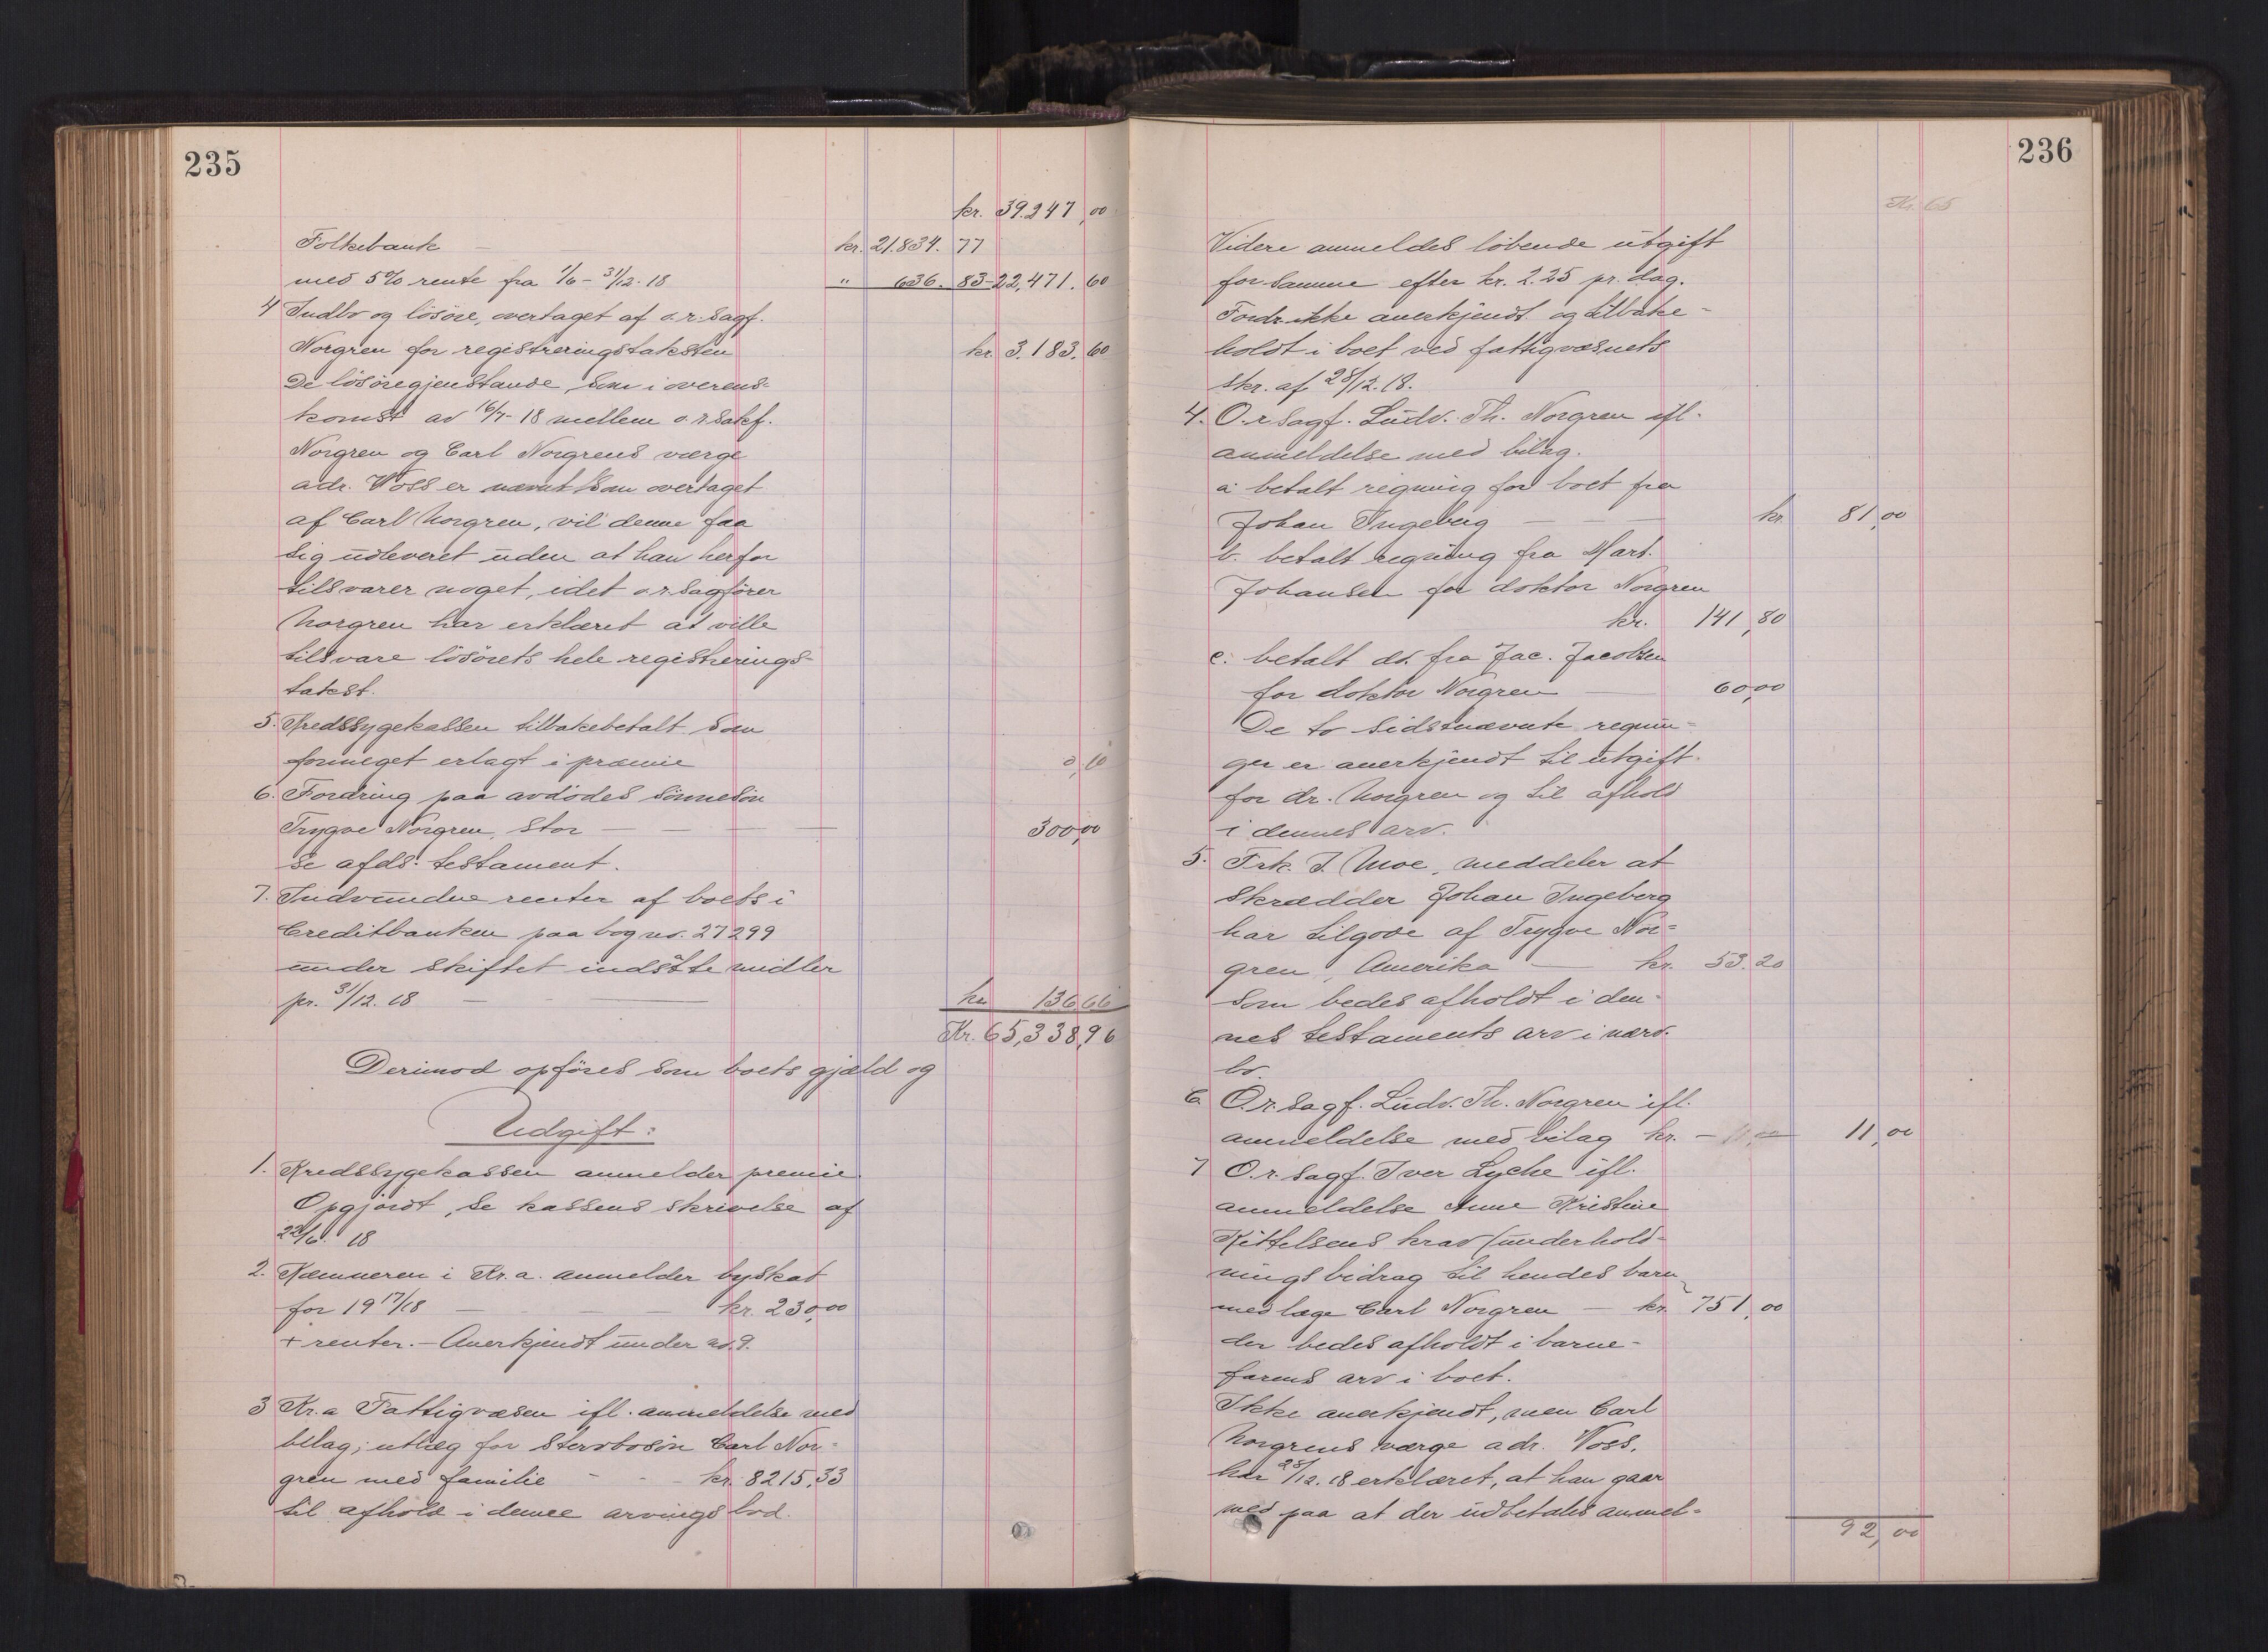 235
kr. 39.247,00
Folkebank — kr. 21.834. 77
med 5% rente fra 1/6 - 31/12. 18 " 636. 83 - 22,471. 60
4 Indbo og lösöre, overtaget af o.r.sagf.
Norgren for registreringstaksten kr. 3.183.60
De lösöregjenstande, som i overens-
komst av 16/7- 18 mellem o.r.sakf.
Norgren og Carl Norgrens værge
adr. Voss er nævnt som overtaget
af Carl Norgren, vil denne faa
sig udleveret uden at han herfor
tilsvarer noget, idet o.r.sagförer
Norgren har erklæret at ville
tilsvare lösörets hele registrerings-
takst.
5. Kredssygekassen tilbakebetalt som
formeget erlagt i præmie 0,10
6. Fordring paa avdödes sönnesön
Trygve Norgren, stor — — — — 300,00
se afds. testament.
7. Indvundne renter af boets i
Creditbanken paa bog no. 27299
under skiftet indsatte midler
pr. 31/12. 18 — — kr. 136,66
Kr. 65,338,96
Derimod opföres som boets gjæld og
Udgift:
1. Kredssygekassen anmelder premie.
Opgjordt, se kassens skrivelse af
22/6. 18
2. Kemneren i Kr.a. anmelder byskat
for 19 17/18 — — — kr. 230,00
+ renter. - Anerkjendt under no. 9.
3 Kr.a Fattigvæsen ifl. anmeldelse med
bilag; utlæg for stervbosön Carl Nor-
gren med familie - - - kr. 8215,33
til afhold i denne arvings lod.
236
Kr. 65
Videre anmeldes löbende utgift
for samme efter kr. 2.25 pr. dag.
Fordr. ikke anerkjendt og tilbake-
holdt i boet ved fattigvæsnets
skr. af 28/12. 18.
4. O.r.sagf. Ludv. Th. Norgren ifl.
anmeldelse med bilag.
a betalt regning for boet fra
Johan Ingeberg — — kr. 81,00
b. betalt regning fra Mart.
Johansen for doktor Norgren
kr. 141,80
c. betalt do. fra Jac. Jacobsen
for doktor Norgren — 60,00
De to sidstnævnte regnin-
ger er anerkjendt til utgift
for dr. Norgren og til afhold
i dennes arv.
5. Frk. J. Moe, meddeler at
skrædder Johan Ingeberg
har tilgode af Trygve Nor-
gren, Amerika — kr. 53.20
som bedes afholdt i den-
nes testaments arv i nærv.
bo.
6 O.r.sagf. Ludv. Th. Norgren ifl.
anmeldelse med bilag kr. - 11,00 11,00
7 O.r.sagf. Iver Lyche ifl.
anmeldelse Anne Kristine
Kittelsens krav (underhold-
ningsbidrag til hendes barn
med læge Carl Norgren — kr. 751,00
der bedes afholdt i barne-
farens arv i boet.
Ikke anerkjendt, men Carl
Norgrens værge adr. Voss,
har 28/12. 18 erklæret, at han gaar
med paa at der udbetales anmel-
92,00